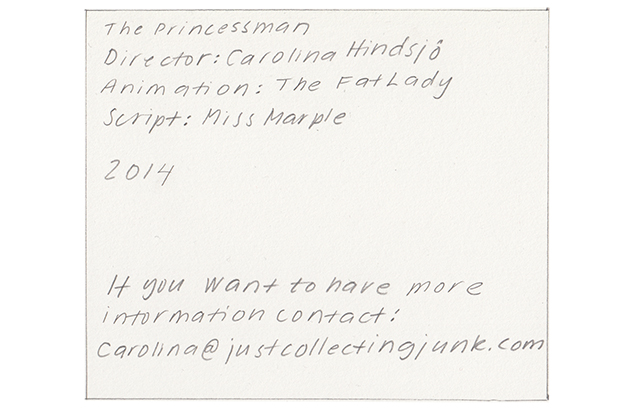 The Princessman
Director: Carolina Hindsjö
Animation: The Fat Lady
Script: Miss Marple
2014
If you want to have more
information contact:
carolina@justcollectingjunk.com